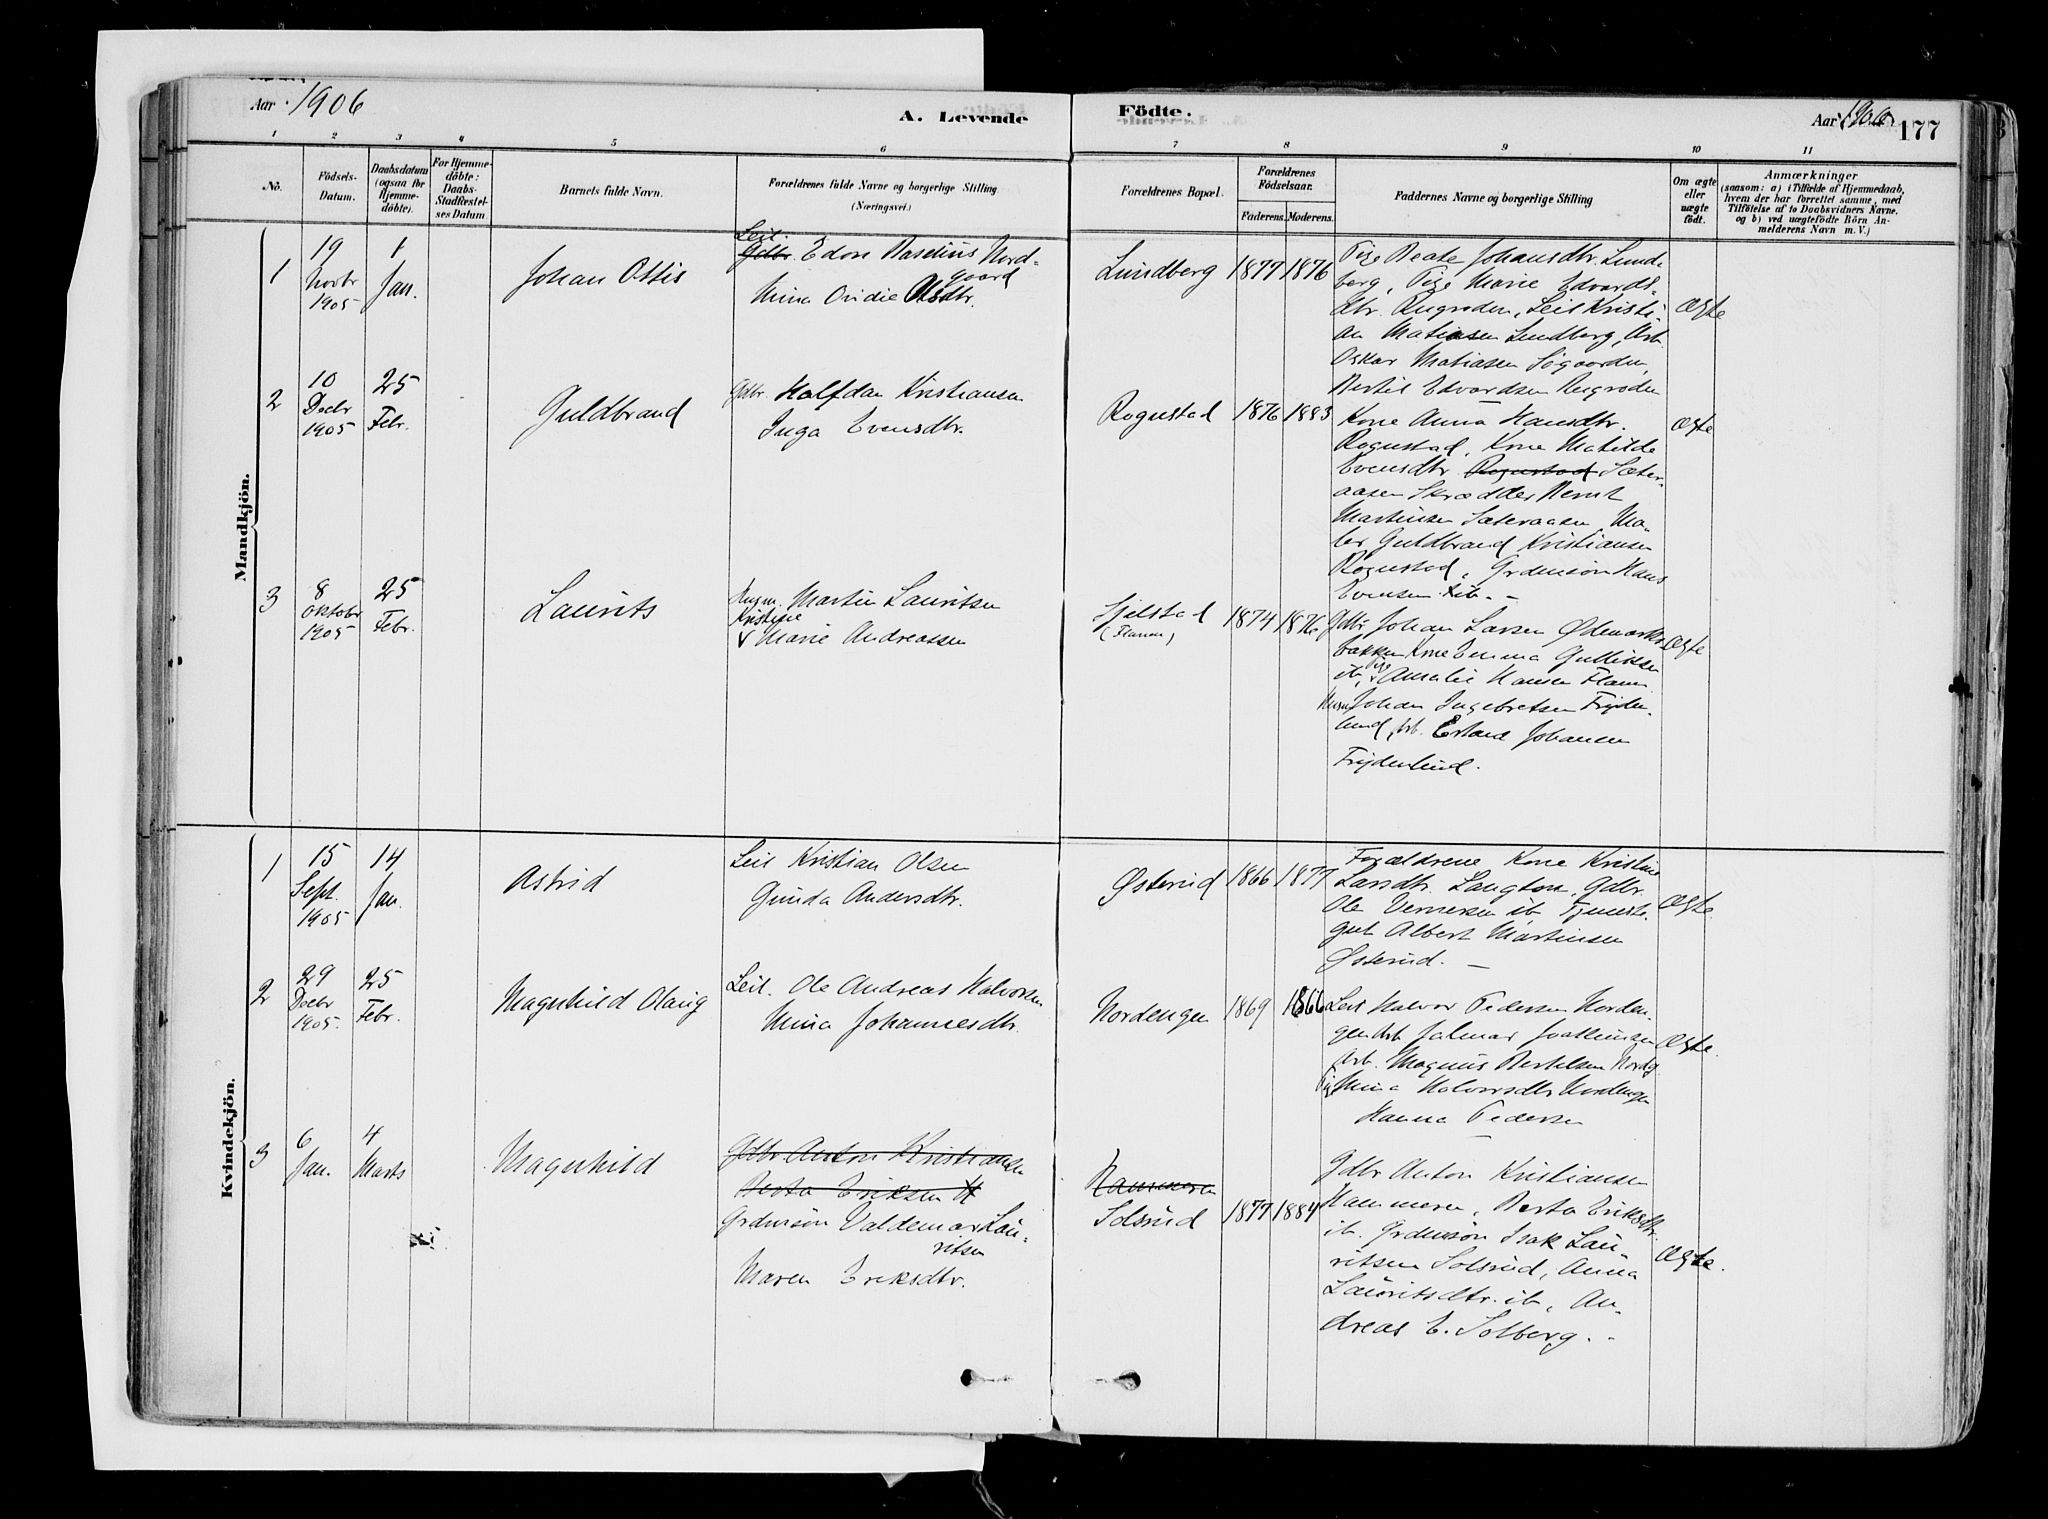 Aar 1906
A. Levende
Födte.
Aar 1906
177
1 2 3 4 5 6 7 8 9 10 11
No.
Födsels-Datum.
Daabsdatum (ogsaa for Hjemmedöbte).
For Hjemmedöbte: Daabs-Stadfæstelses Datum.
Barnets fulde Navn.
Forældrenes fulde Navne og borgerlige Stilling
(Næringsvei.)
Forældrenes Bopæl.
Forældrenes Födselsaar.
Faderens. Moderens.
Faddernes Navne og borgerlige Stilling
Om ægte eller uægte födt.
Anmærkninger
(saasom: a) i Tilfælde af Hjemmedaab,
hvem der har forrettet samme, med
Tilföielse af to Daabsvidners Navne.
og b) ved uægtefödte Börn An-
melderens Navn m. V.)
Mandkjön.
1
19 Novbr 1905
1 Jan.
Johan Ottis
Leil.
Gdbr. Edon Baselius Nord-
gaard
Mina Ovidie Olsdtr.
Lundberg
1877 1876
Pige Beate Johansdtr. Lund-
berg, Pige Marie Edvards-
dtr. Rugroden, Leil Kristi-
an Matiasen Lundberg, Arb.
Oskar Matiasen Søgaarden,
Bertil Edvardsen Rugroden
Ægte
2
10 Decbr 1905
25 Febr.
Guldbrand
Gdbr. Halfdan Kristiansen
Inga Evensdtr.
Rognstad
1876 1883
Kone Anna Hansdtr.
Rognstad, Kone Matilde
Evensdtr. Rognstad Sæter-
aasen Skrædder Bernt
Martinsen Sæteraasen, Ma-
ler Guldbrand Kristiansen
Rognstad, Grdmsøn Hans
Evensen ib. -
Ægte
3
8 Oktobr 1905
25 Febr.
Laurits
Husm. Martin Lauritsen
Kristine
& Marie Andreassen
Sjelstad
(Flaen)
1874 1876
Gdbr Johan Larsen Ødemarks-
bakken Kone Emma Gulliksen
ib, Pige Amalie Hansen
Husm Johan Ingebretsen Frijden-
lund, Arb. Erland Johansen
Frijdenlund.
Ægte
Kvindekjön.
1
15 Sept. 1905
14 Jan.
Astrid
Leil Kristian Olsen
Gunda Andersdtr.
Østerud
1866 1877
Forældrene, Kone Kristine
Larsdtr. Langton, Gdbr.
Ole Vernersen ib Tjeneste-
gut Albert Martinsen
Østerud. -
Ægte.
2
29 Decbr 1905.
25 Febr.
Magnhild Olaug
Leil. Ole Andreas Halvorsen
Mina Johannesdtr.
Nordengen
1869 1866
Leil Halvor Pedersen Norden-
gen Arb Jalmar Joakimsen
Arb. Magnus Bertelsen Nordg.
Pige Mina Halvorsdtr Nordengen
Hanna Pedersen
Ægte.
3
6 Jan.
4 Marts
Magnhild
Gdbr Anton Kristiansen
Berta Eriksen
Grdmsøn Valdemar Lau-
ritsen
Maren Eriksdtr.
Hammeren
Solsrud
1877 1884
Gdbr Anton Kristiansen
Hammeren, Berta Eriksdtr.
ib. Grdmsøn Isak Lau-
ritsen Solsrud, Anna
Lauritsdtr. ib, An-
dreas E. Solberg. -
Ægte.